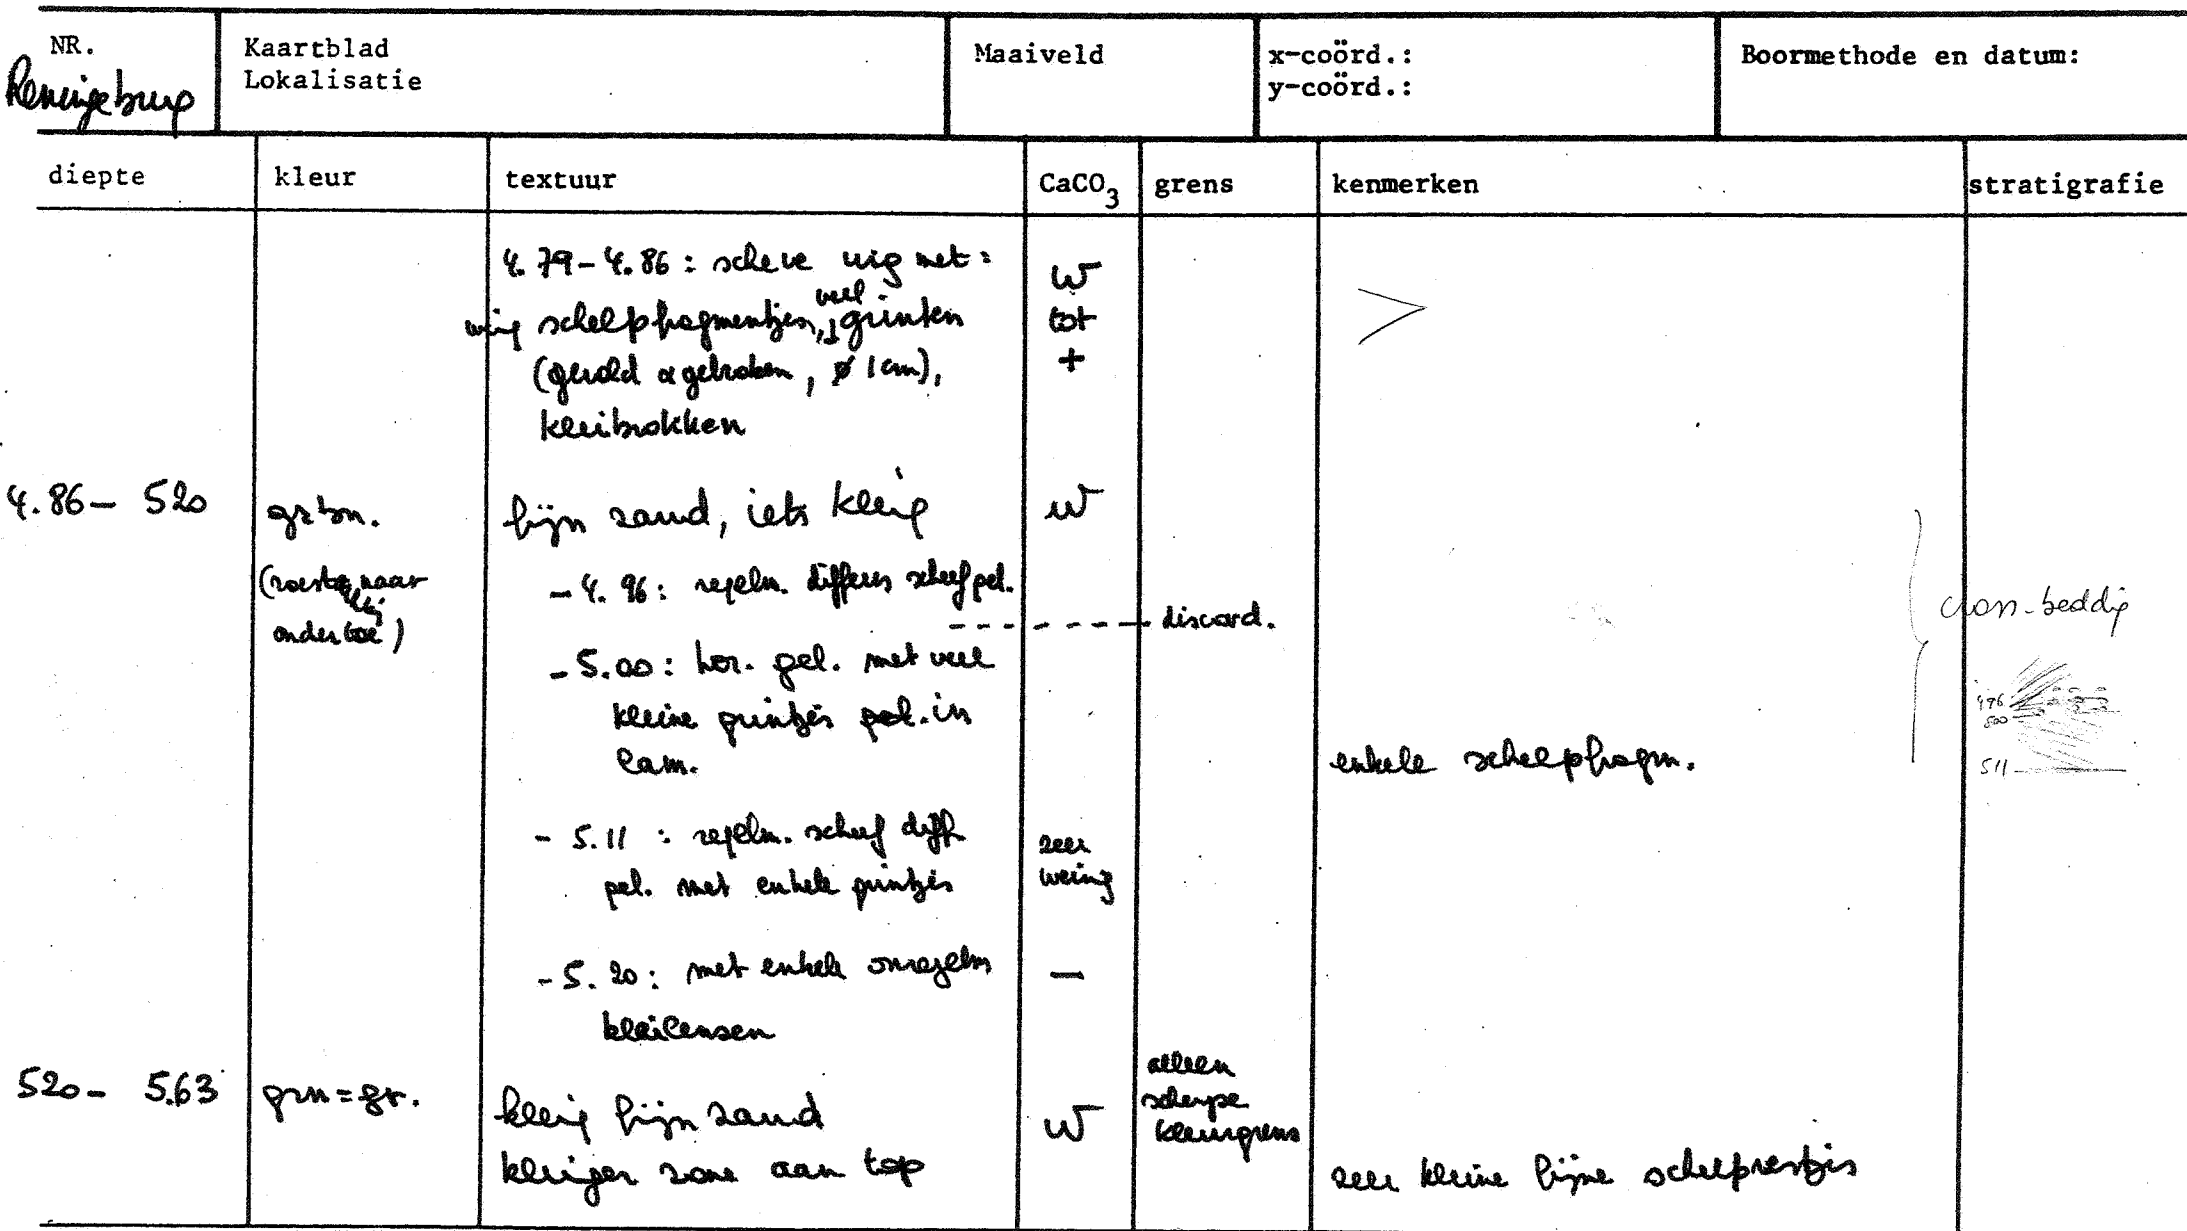 NR.
Reningebrug
Kaartblad
Lokalisatie
Maaiveld
x-coörd.:
y-coörd.:
Boormethode en datum:
diepte
kleur
textuur
CaCO3
grens
kenmerken
stratigrafie
4.79-4.86: scheve wig met:
weinig schelpfragmentjes, veel grinten
(gerold & gebroken, ø 1cm),
kleibrokken
w
tot
+
4.86 - 520
grbn.
(roestig naar
onder toe)
fijn zand, iets kleiig
w
- 4.96: regelm. differs scheef gel.
discord.
- 5.00: hor. gel. met veel
kleine grintjes gel. in
lam.
enkele schelpfragm.
cross-beddig
496
500
511
- 5.11 : regelm. scheef diff
gel. met enkele grintjes
zeer
weinig
- 5.20: met enkele onregelm
kleilensen
-
520 - 5.63
grn=gr.
kleiig fijn zand
kleiiger zone aan top
w
alleen
scherpe
kleurgrens
zeer kleine fijne schelprestjes